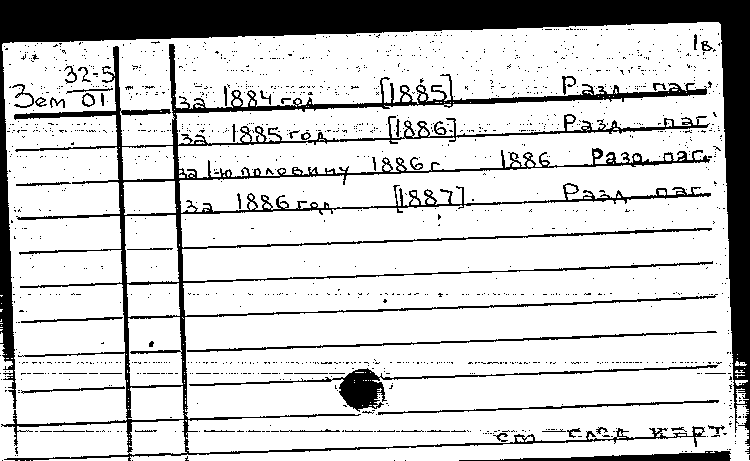 1в
32-5
Зем 01
за 1884 год [1885] Разд. паг.
за 1885 год [1886] Разд. паг.
за 1-ю половину 1886 г. 1886 Разд. паг.
за 1886 год [1887]. Разд. паг.
см след карт